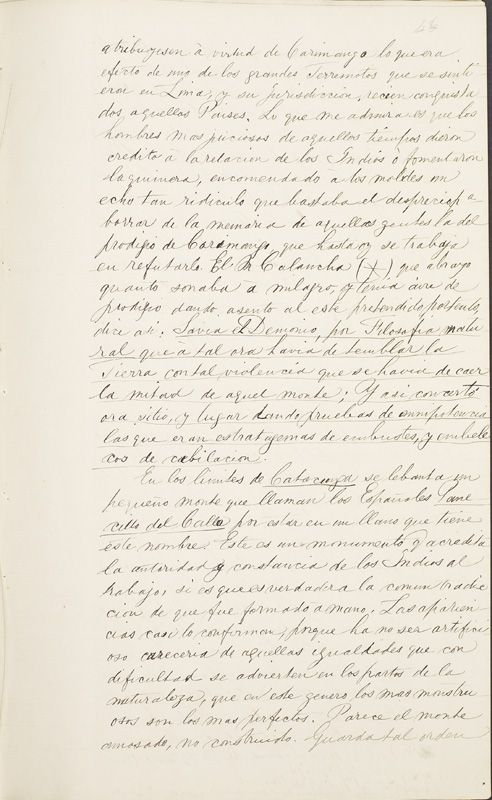 atribuyesen à virtud de Carimango lo que era
efecto de uno de los grandes Terremotos que se sinti-
eron en Lima, y su Jurisdiccion, recien conquista
dos, aquellos Paises. Lo que me admira es que los
hombres mas juiciosos de aquellos tiempos dieron
credito à la relacion de los Indios ò fomentaron
la quimera, encomendado à los moldes un
echo tan ridiculo que bastaba el desprecio p a-
borrar de la memoria de aquellas gentes la del
prodigio de Caramango, que hasta oy se trabaja
en refutarlo. El Calancha (+), que abrazo
quanto sonaba a milagro, y tenia aire de
prodigio dando asento al este pretendido portento,
dice asi: Savia el Demonio, por Filosofia natu
ral que à tal ora havia de temblar la
Tierra con tal violencia que se havia de caer
la mitad de aquel monte; Y asi concertò
ora, sitio, y lugar dando pruebas de omnipotencia
las que eran estratagemas de embustes, y embele
cos de cabilacion.
En los limites de se lebanta un
pequeño monte que llaman los Españoles Pane-
cillo del Callo por estar en un llano que tiene
este nombre. Este es un monumento q acredita
la autoridad y constancia de los Indios al
trabajo, si es que es verdadera la comun tradic
cion de que fue formado a mano. Las aparien
cias casi lo confirman; porque ha no ser artifici
oso careceria de aquellas igualdades que con
dificultad se advierten en los partos de la
naturaleza, que en este genero los mas monstru
osos son los mas perfectos. Parece el monte
amasado, no construido. Guarda tal orden